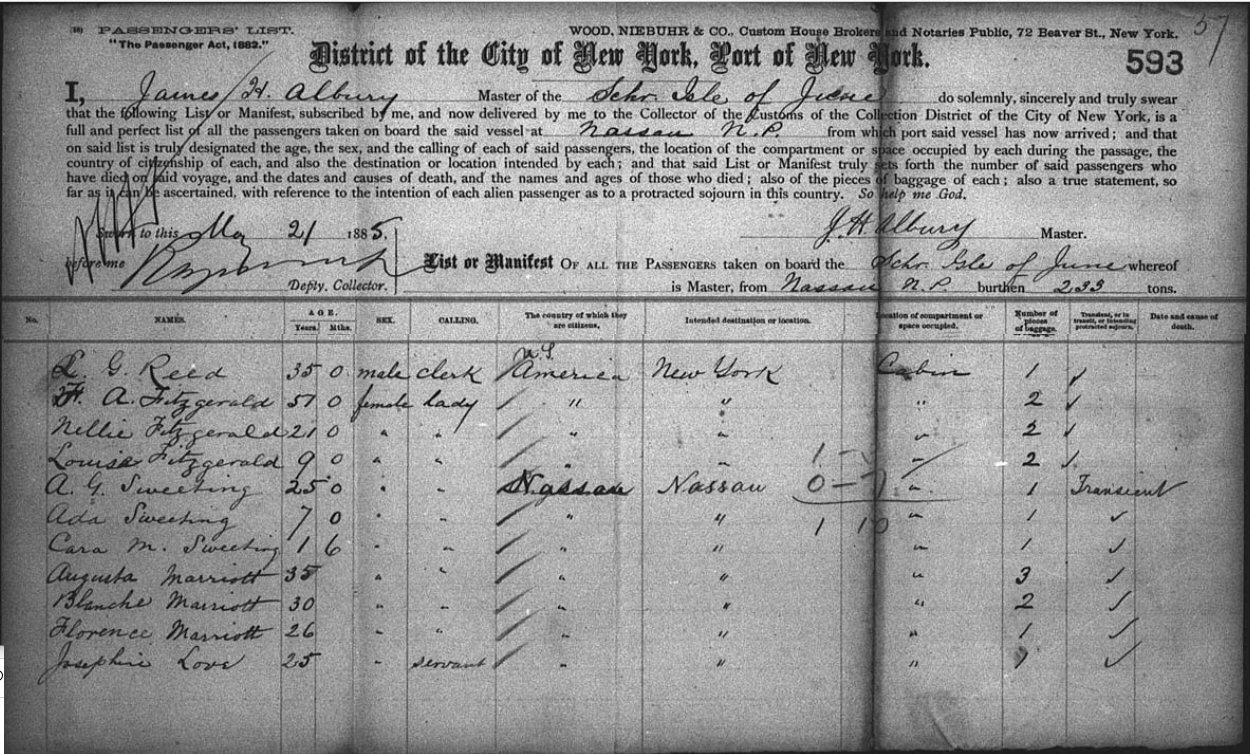 (10) PASSENGERS' LIST. WOOD, NIEBUHR & CO., Custom House Brokers and Notaries Public, 72 Beaver St., New York. 57
"The Passenger Act, 1882."
District of the City of New York, Port of New York. 593
I, James H. Albury Master of the Schr. Isle of June do solemnly, sincerely and truly swear
that the following List or Manifest, subscribed by me, and now delivered by me to the Collector of the Customs of the Collection District of the City of New York, is a
full and perfect list of all the passengers taken on board the said vessel at Nassau N.P. from which port said vessel has now arrived; and that
on said list is truly designated the age, the sex, and the calling of each of said passengers, the location of the compartment or space occupied by each during the passage, the
country of citizenship of each, and also the destination or location intended by each; and that said List or Manifest truly sets forth the number of said passengers who
have died on said voyage, and the dates and causes of death, and the names and ages of those who died; also of the pieces of baggage of each; also a true statement, so
far as it can be ascertained, with reference to the intention of each alien passenger as to a protracted sojourn in this country. So help me God.
Sworn to this May 21 1885. J. H. Albury Master.
before me
Deply. Collector.
List or Manifest OF ALL THE PASSENGERS taken on board the Schr. Isle of June whereof
is Master, from Nassau N.P. burthen 233 tons.
No. NAMES. AGE. Years. Mths. SEX. CALLING. The country of which they are citizens. Intended destination or location. Location of compartment or space occupied. Number of pieces of baggage. Transient, or in transit, or intending protracted sojourn. Date and cause of death.
G. Reed 35 0 male clerk U.S. America New York Cabin 1 ✓
A. Fitzgerald 51 0 female lady " " " 2 ✓
Nellie Fitzgerald 21 0 " " " " " 2 ✓
Louise Fitzgerald 9 0 " " " " " 2 ✓
A. G. Sweeting 25 0 " " Nassau Nassau " 1 Transient
Ada Sweeting 7 0 " " " " 1 ✓
Cara M. Sweeting 1 6 " " " " " 1 ✓
Augusta Marriott 35 " " " " " 3 ✓
Blanche Marriott 30 " " " " " 2 ✓
Florence Marriott 26 " " " " " 1 ✓
Josephine Love 25 " servant " " " 1 ✓